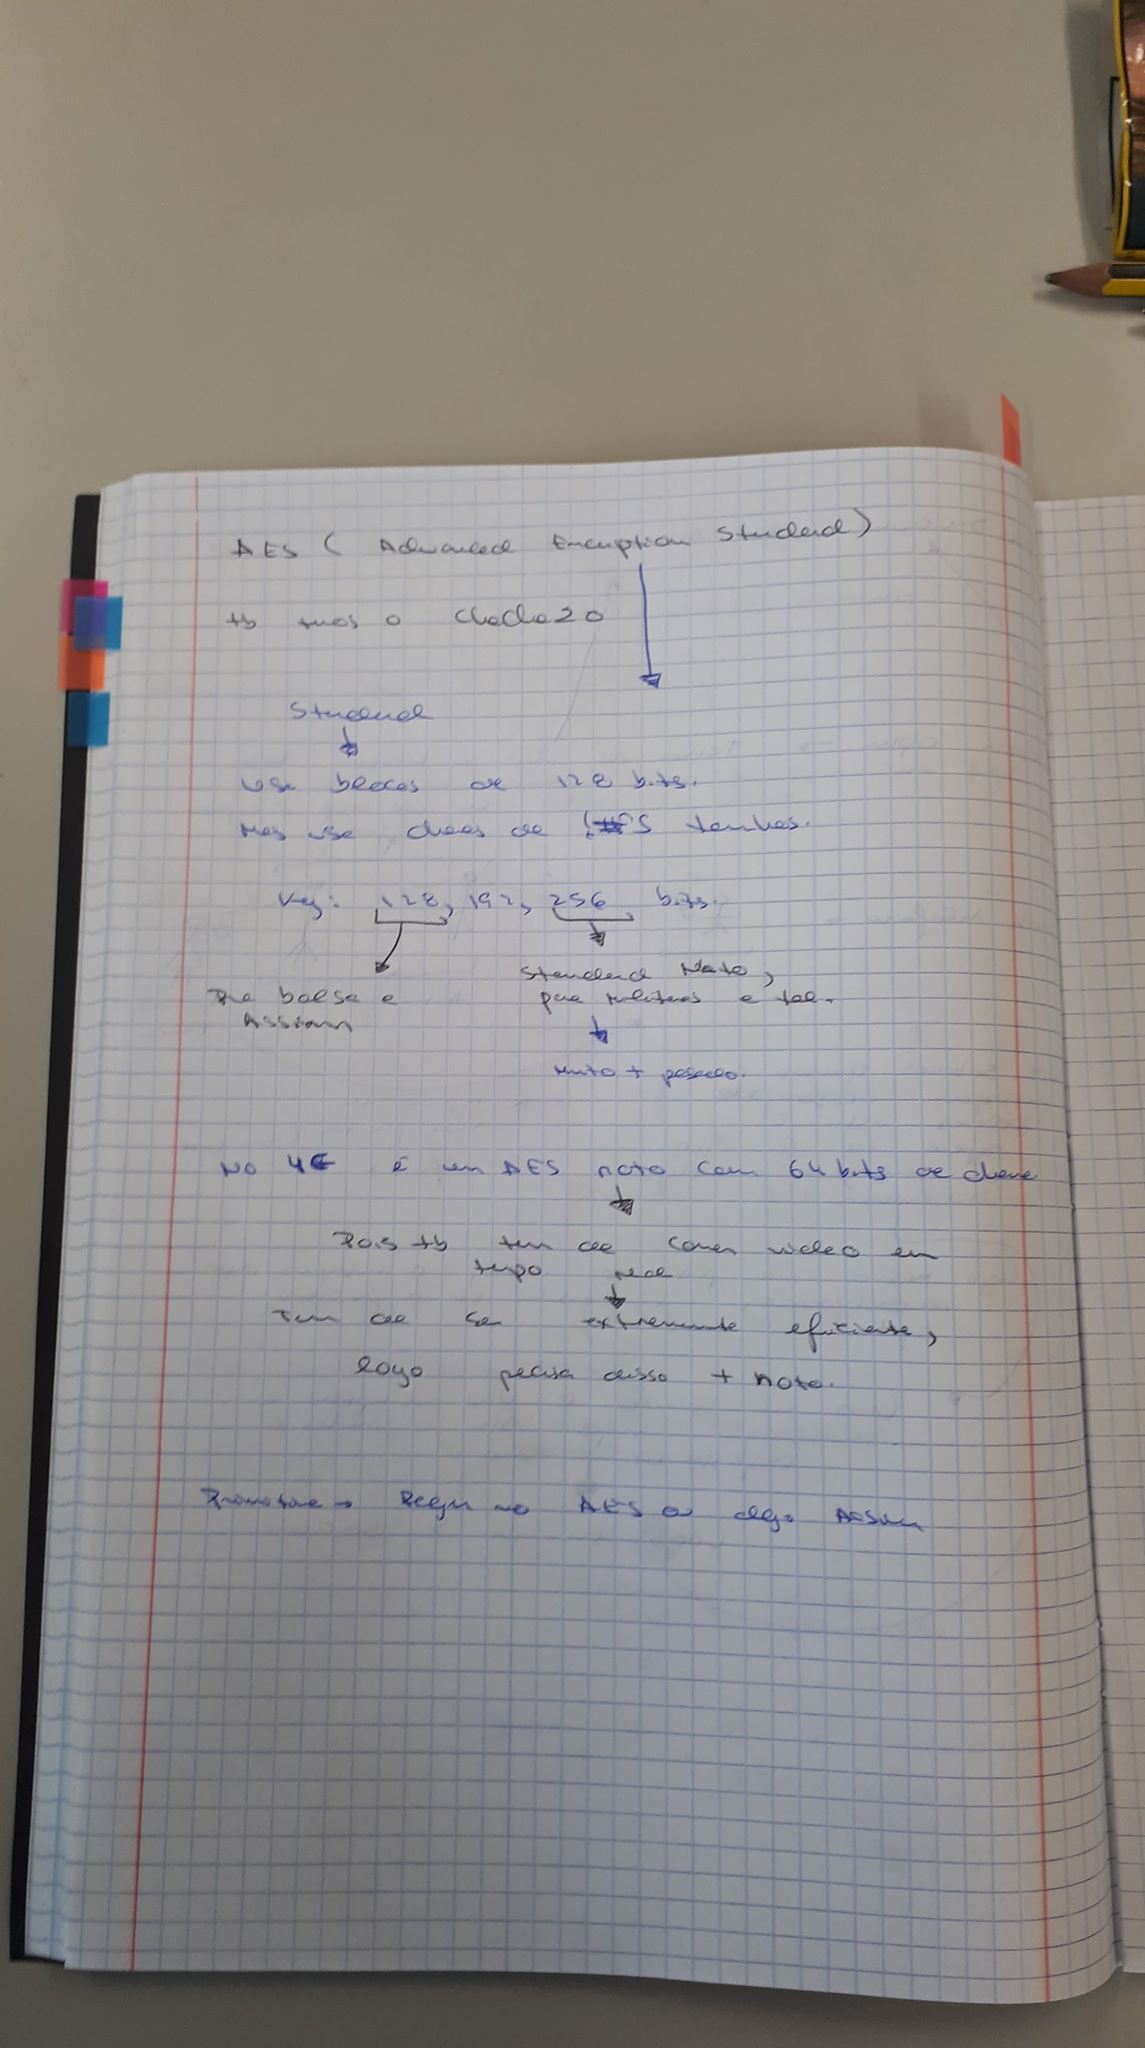 AES ( Advanced Encryption Standard)
tb temos o ChaCha20
Standard
Usa blocos de 128 bits.
Mas usa chaves de S tamanhos.
Key: 128, 192, 256 bits.
Standard Nato,
Pra bolsa e
para militares e tal.
Assiam
Muito + pesado.
No 4G é um AES noto com 64 bits de chave
Pois tb tem de correr video em
tempo real
Tem de ser extremamente eficiente,
logo precisa disso + noto.
Primitive → no AES ou algo Assim